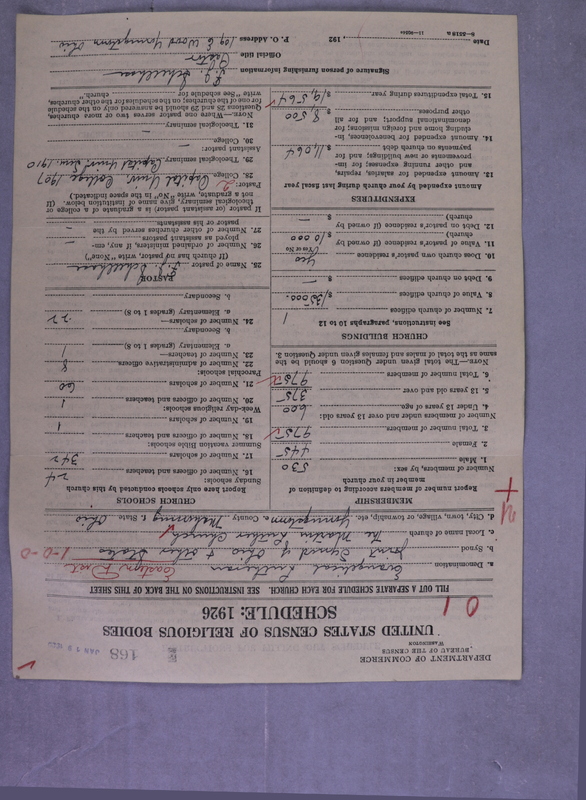 DEPARTMENT OF COMMERCE
BUREAU OF THE CENSUS
WASHINGTON
168
UNITED STATES CENSUS OF RELIGIOUS BODIES
SCHEDULE: 1926
FILL OUT A SEPARATE SCHEDULE FOR EACH CHURCH. SEE INSTRUCTIONS ON THE BACK OF THIS SHEET
a. Denomination Evangelical Lutheran Eastern Dist
b. Synod Joint Synod of Ohio & other States 1-0-0
c. Local name of church The Martin Luther Church
d. City, town, village, or township, etc. Youngstown e. County Mahoning f. State Ohio
MEMBERSHIP
Report number of members according to definition of member in your church
Number of members, by sex:
1. Male 530
2. Female 445
3. Total number of members 975
Number of members under and over 13 years old:
4. Under 13 years of age 600
5. 13 years old and over 375
6. Total number of members 975
NOTE.—The total given under Question 6 should be the same as the total of males and females given under Question 3.
CHURCH BUILDINGS
See instructions, paragraphs 10 to 12
7. Number of church edifices 1
8. Value of church edifices $ 35000.
9. Debt on church edifices $ —
10. Does church own pastor's residence yes
(Yes or No)
11. Value of pastor's residence (if owned by church) $ 10,000
12. Debt on pastor's residence (if owned by church) $ —
EXPENDITURES
Amount expended by your church during last fiscal year
13. Amount expended for salaries, repairs, and other running expenses; for improvements or new building; and for payments on church debt $ 11,064
14. Amount expended for benevolences, including home and foreign missions; for denominational support; and for all other purposes $ 8,500
15. Total expenditures during year $ 19,564
CHURCH SCHOOLS
Report here only schools conducted by this church
Sunday schools:
16. Number of officers and teachers 24
17. Number of scholars 342
Summer vacation Bible schools:
18. Number of officers and teachers
19. Number of scholars 1
Week-day religious schools:
20. Number of officers and teachers 1
21. Number of scholars 60
Parochial schools:
22. Number of administrative officers 8
23. Number of teachers—
a. Elementary (grades 1 to 8) 1
b. Secondary
24. Number of scholars—
a. Elementary (grades 1 to 8) 22
b. Secondary
PASTOR
25. Name of pastor
(If church has no pastor, write "None")
26. Number of ordained ministers, if any, employed as pastor's assistants —
27. Number of other churches served by the pastor or his assistants —
If pastor or assistant pastor is a graduate of a college or theological seminary, give name of institution below. (If not a graduate, write "No" in the space indicated.)
Pastor: 2
28. College Capital Univ. College 1907
29. Theological seminary Capital Univ. Sem. 1910
Assistant pastor:
30. College —
31. Theological seminary —
NOTE.—Where one pastor serves two or more churches, Questions 28 and 29 should be answered only on the schedule for one of the churches; on the schedules for the other churches, write "See schedule for church."
Signature of person furnishing information
Official title Pastor
P. O. Address 109 E Wood Youngstown Ohio
Date , 192